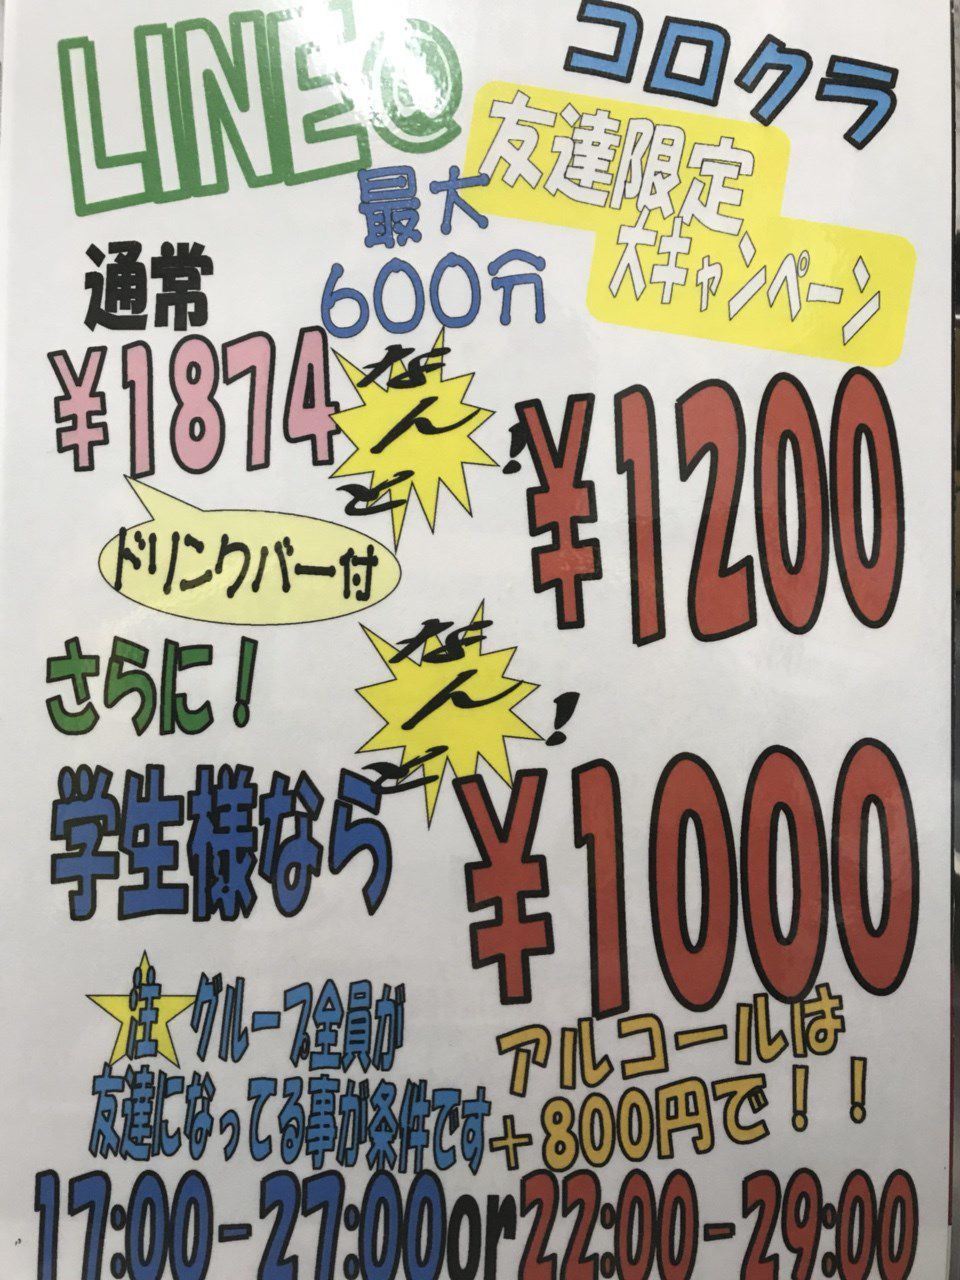 LINE@
コロクラ
友達限定
大キャンペーン
最大
600分
通常
¥1874
なんと!
¥1200
ドリンクバー付
さらに!
なんと!
学生様なら
¥1000
注 グループ全員が
友達になってる事が条件です
アルコールは
+800円で!!
17:00-27:00or22:00-29:00